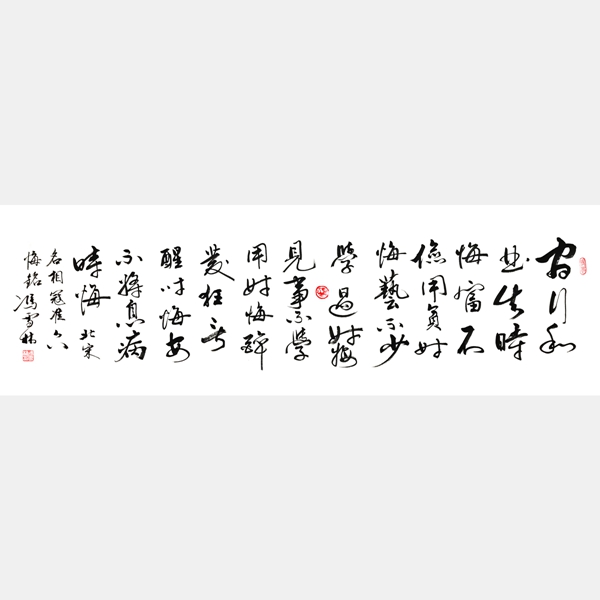 官行私
曲失時
悔富不
儉用貧时
悔藝不少
學過时悔
見事不學
用时悔醉
發狂言
醒时悔安
不將息病
時悔 北宋
名相寇准六
悔銘 馮雪林